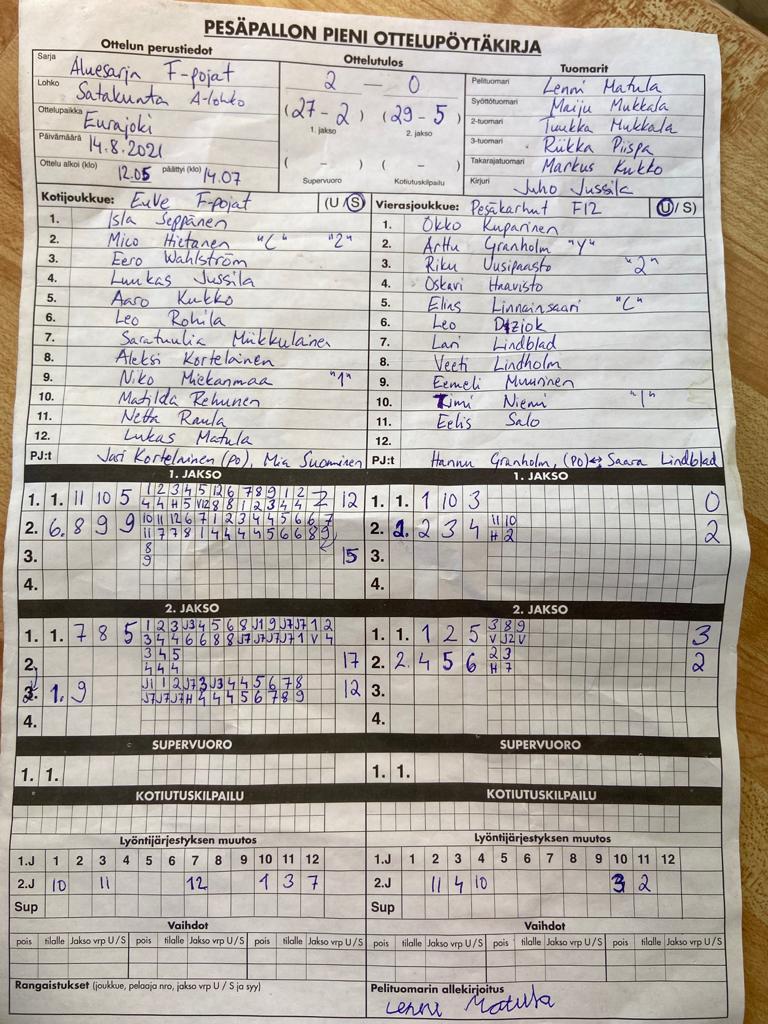 PESÄPALLON PIENI OTTELUPÖYTÄKIRJA
Ottelun perustiedot
Sarja Aluesarja F-pojat
Lohko Satakunta A-lohko
Ottelupaikka Eurajoki
Päivämäärä 14.8.2021
Ottelu alkoi (klo) 12.05 päättyi (klo) 14.07
Ottelutulos
2 — 0
(27 - 2) (29 - 5)
1. jakso 2. jakso
( - ) ( - )
Supervuoro Kotiutuskilpailu
Tuomarit
Pelituomari Lenni Matula
Syöttötuomari Maiju Mukkala
2-tuomari Tuukka Mukkala
3-tuomari Riikka Piispa
Takarajatuomari Markus Kukko
Kirjuri Juho Jussila
Kotijoukkue: EuVe F-pojat (U / S)
1. Isla Seppänen
2. Mico Hietanen "C" "2"
3. Eero Wahlström
4. Luukas Jussila
5. Aaro Kukko
6. Leo Rohila
7. Saratuulia Miikkulainen
8. Aleksi Kortelainen
9. Niko Miekanmaa "1"
10. Matilda Rehunen
11. Netta Raula
12. Lukas Matula
PJ:t Jari Kortelainen (PO), Mia Suominen
Vierasjoukkue: Pesäkarhut F12 (U / S)
1. Okko Kuparinen
2. Arttu Granholm "Y"
3. Riku Uusipaasto "2"
4. Oskari Haavisto
5. Elias Linnainsaari "C"
6. Leo Dziok
7. Lari Lindblad
8. Veeti Lindholm
9. Eemeli Muurinen
10. Timi Niemi "1"
11. Eelis Salo
12.
PJ:t Hannu Granholm, (PO) ↔ Saara Lindblad
1. JAKSO
1. 1. 11 10 5 1 2 3 4 5 12 6 7 8 9 1 2 12
4 4 H 5 V12 8 8 1 2 3 4 4
2. 6. 8 9 9 10 11 12 6 7 1 2 3 4 4 5 6 6 7
11 7 7 8 1 4 4 4 4 5 6 6 8 9
3. 8 15
9
4.
1. JAKSO
1. 1. 1 10 3 0
2. 2. 2 3 4 11 10 2
H 2
3.
4.
2. JAKSO
1. 1. 7 8 5 1 2 3 J3 4 5 6 8 J1 9 J7 J7 1 2
3 4 4 6 6 8 8 J7 J7 J7 J7 1 V 4
2. 3 4 5 17
4 4 4
3. 1. 9 J1 1 2 J7 3 J3 4 4 5 6 7 8 12
J7 J7 J7 H 4 4 4 5 6 7 8 9
4.
2. JAKSO
1. 1. 1 2 5 3 8 9 3
V J2 V
2. 2. 4 5 6 2 3 2
H 7
3.
4.
SUPERVUORO
1. 1.
SUPERVUORO
1. 1.
KOTIUTUSKILPAILU
KOTIUTUSKILPAILU
Lyöntijärjestyksen muutos
1.J 1 2 3 4 5 6 7 8 9 10 11 12
2.J 10 11 12 1 3 7
Sup
Lyöntijärjestyksen muutos
1.J 1 2 3 4 5 6 7 8 9 10 11 12
2.J 11 4 10 3 2
Sup
Vaihdot
pois tilalle Jakso vrp U / S pois tilalle Jakso vrp U / S pois tilalle Jakso vrp U / S
Vaihdot
pois tilalle Jakso vrp U / S pois tilalle Jakso vrp U / S pois tilalle Jakso vrp U / S
Rangaistukset (joukkue, pelaaja nro, jakso vrp U / S ja syy)
Pelituomarin allekirjoitus
Lenni Matula